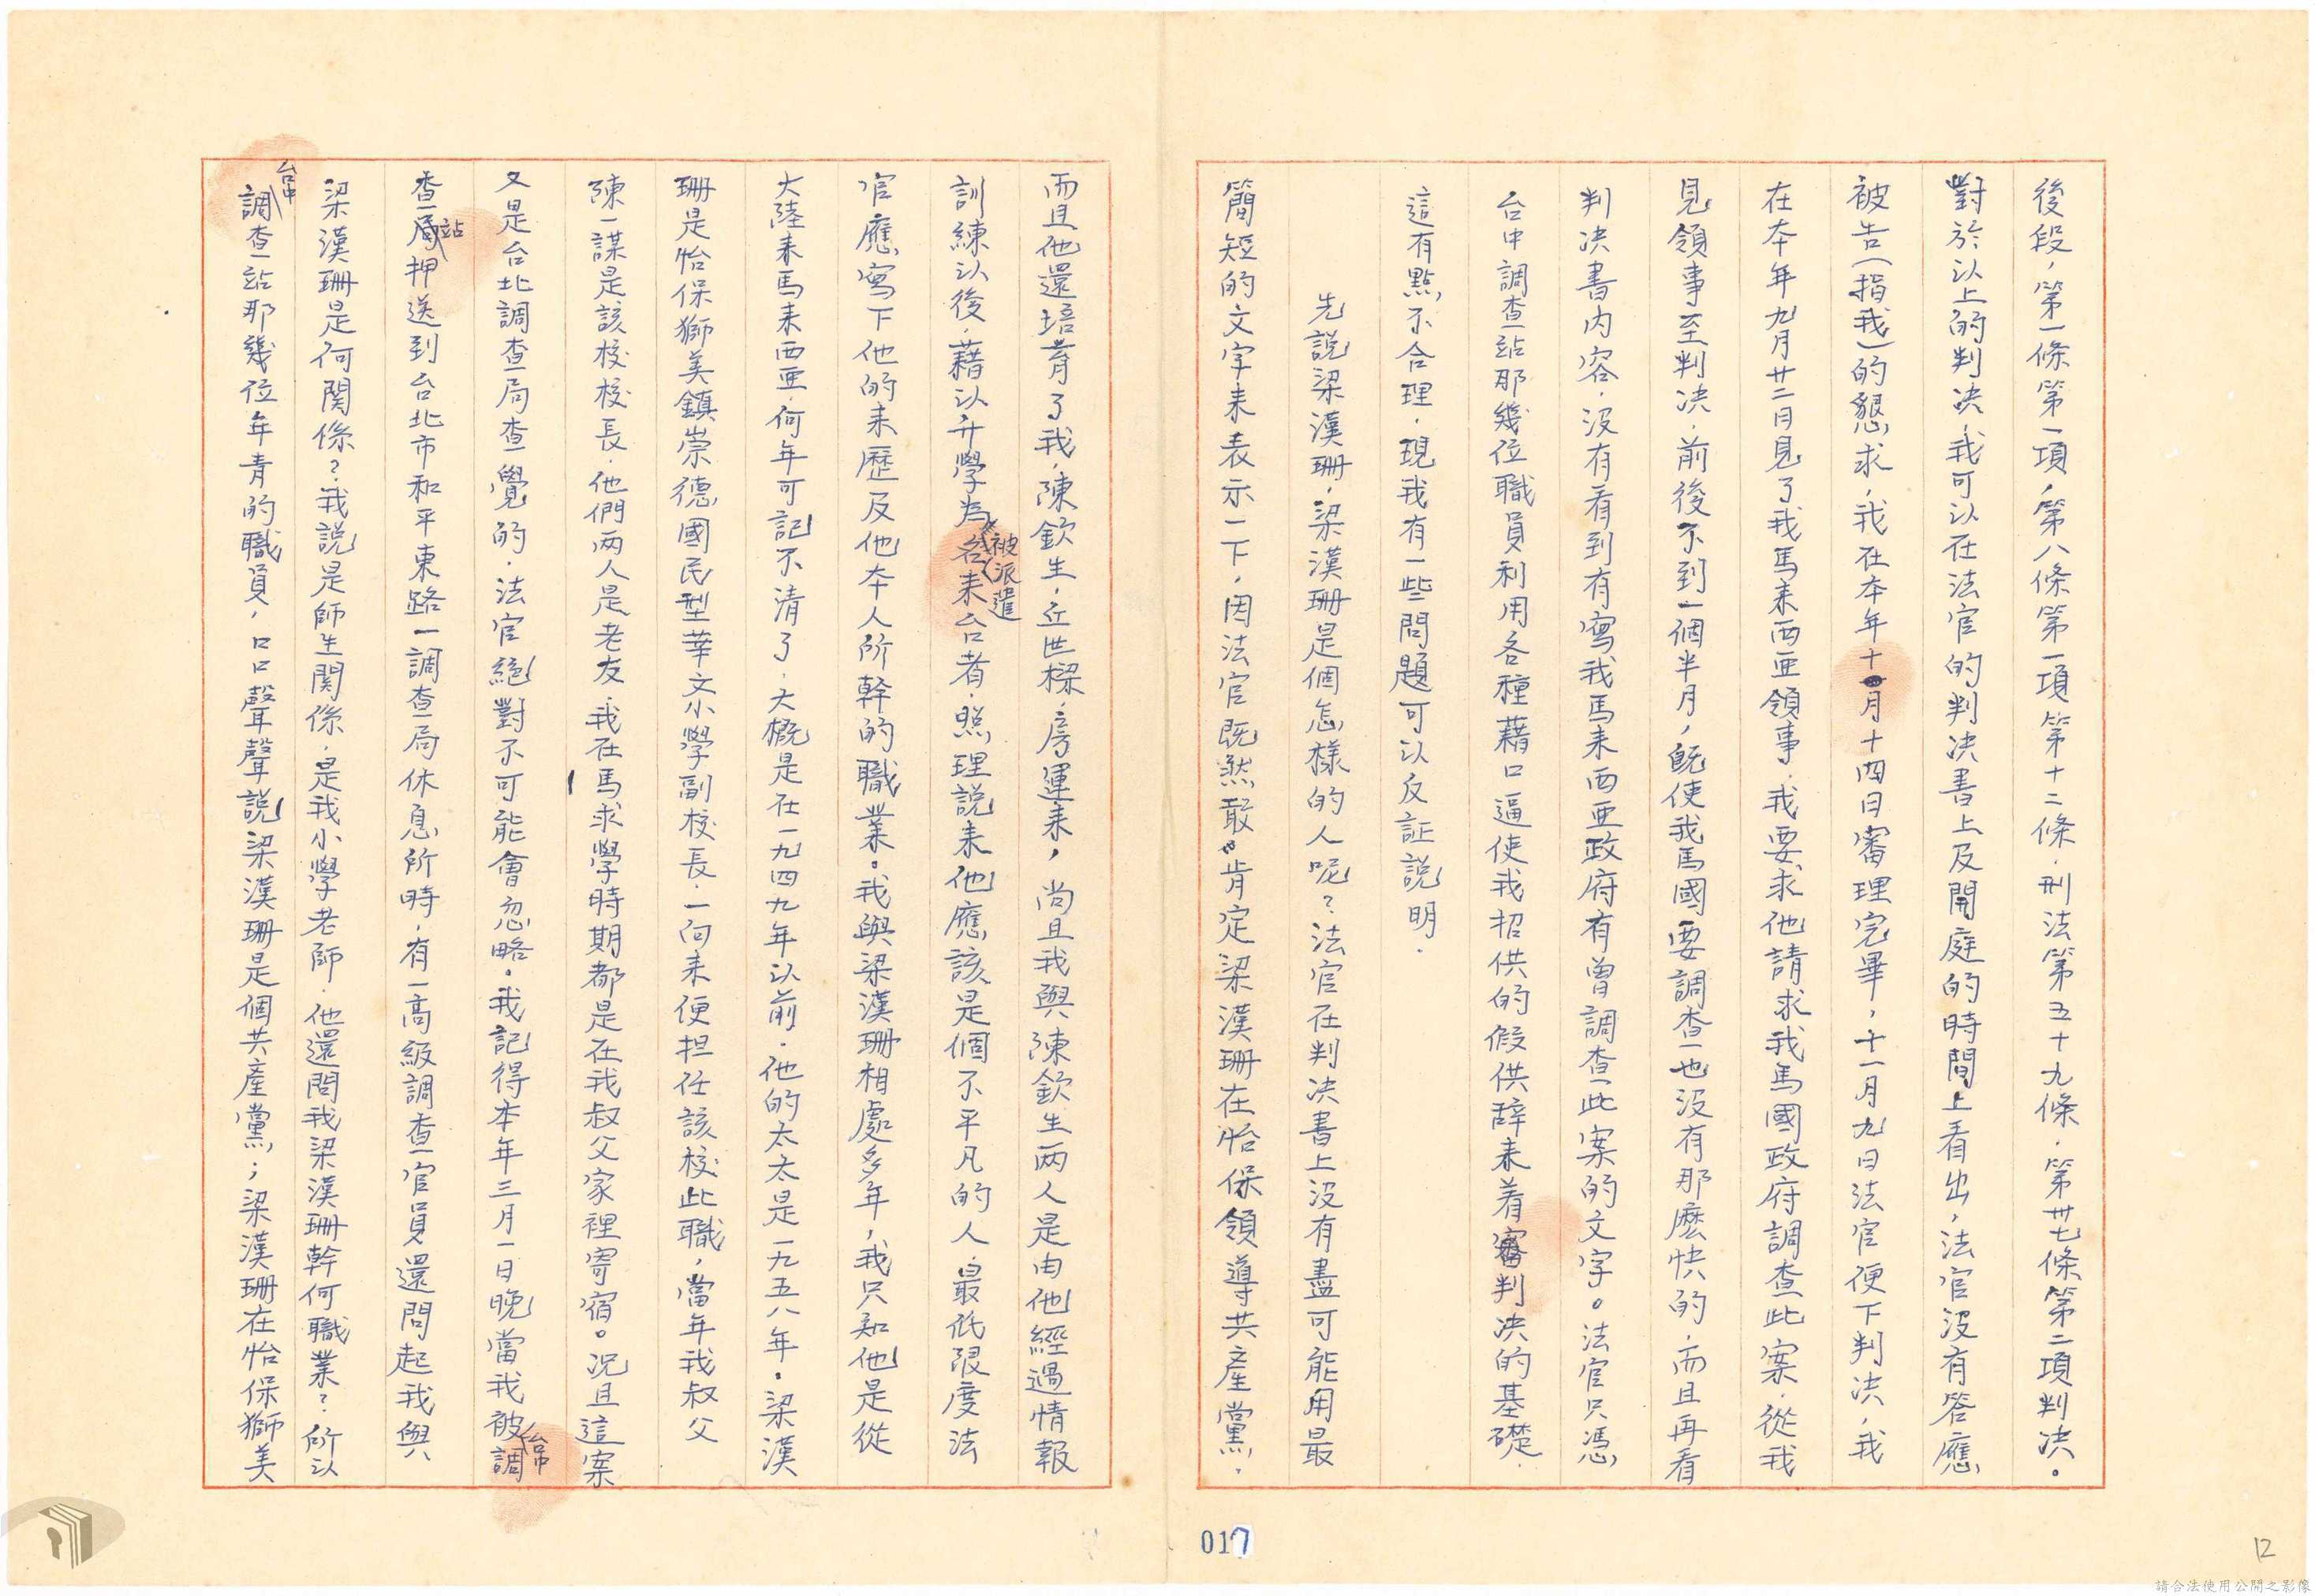 後段，第一條第一項，第八條第一項第十二條．刑法第五十九條．第卅七條第二項判决。
對於以上的判决，我可以在法官的判决書上及開庭的時間上看出，法官沒有答應
被告（指我）的懇求，我在本年十月十四日審理完畢，十一月九日法官便下判决，我
在本年九月廿二日見了我馬来西亜領事．我要求他請求我馬國政府調查此案．從我
見領事至判决．前後不到一個半月，既使我馬國要調查也沒有那麽快的．而且再看
判决書内容．沒有看到有寫我馬来西亜政府有曾調查此案的文字。法官只憑
台中調查站那幾位職員利用各種藉口逼使我招供的假供辞来着審判决的基礎．
這有點不合理．現我有一些問題可以反証説明．
先説梁漢珊．梁漢珊是個怎樣的人呢？法官在判决書上沒有盡可能用最
簡短的文字来表示一下，因法官既然敢肯定梁漢珊在怡保領導共產黨．
017
而且他還培育了我，陳欽生，丘世樑，房運来，尚且我與陳欽生两人是由他經過情報
訓練以後．藉以升學為名来台者．照理説来他應該是個不平凡的人．最低限度法
被派遣
官應寫下他的来歷及他本人所幹的職業。我與梁漢珊相處多年，我只知他是從
大陸来馬来西亜．何年可記不清了．大概是在一九四九年以前．他的太太是一九五八年．梁漢
珊是怡保獅美鎮崇德國民型華文小學副校長．一向来便担任該校此職，當年我叔父
陳一謀是該校校長．他們两人是老友．我在馬求學時期都是在我叔父家裡寄宿。况且這案
又是台北調查局查覺的．法官絕對不可能會忽略。我記得本年三月一日晚當我被調
台中
查局押送到台北市和平東路一調查局休息所時．有一高級調查官員還問起我與
站
梁漢珊是何関係？我説是師生関係．是我小學老師．他還問我梁漢珊幹何職業？所以
台中
調查站那幾位年青的職員，口口聲聲説梁漢珊是個共產黨；梁漢珊在怡保獅美
12
請合法使用公開之影像